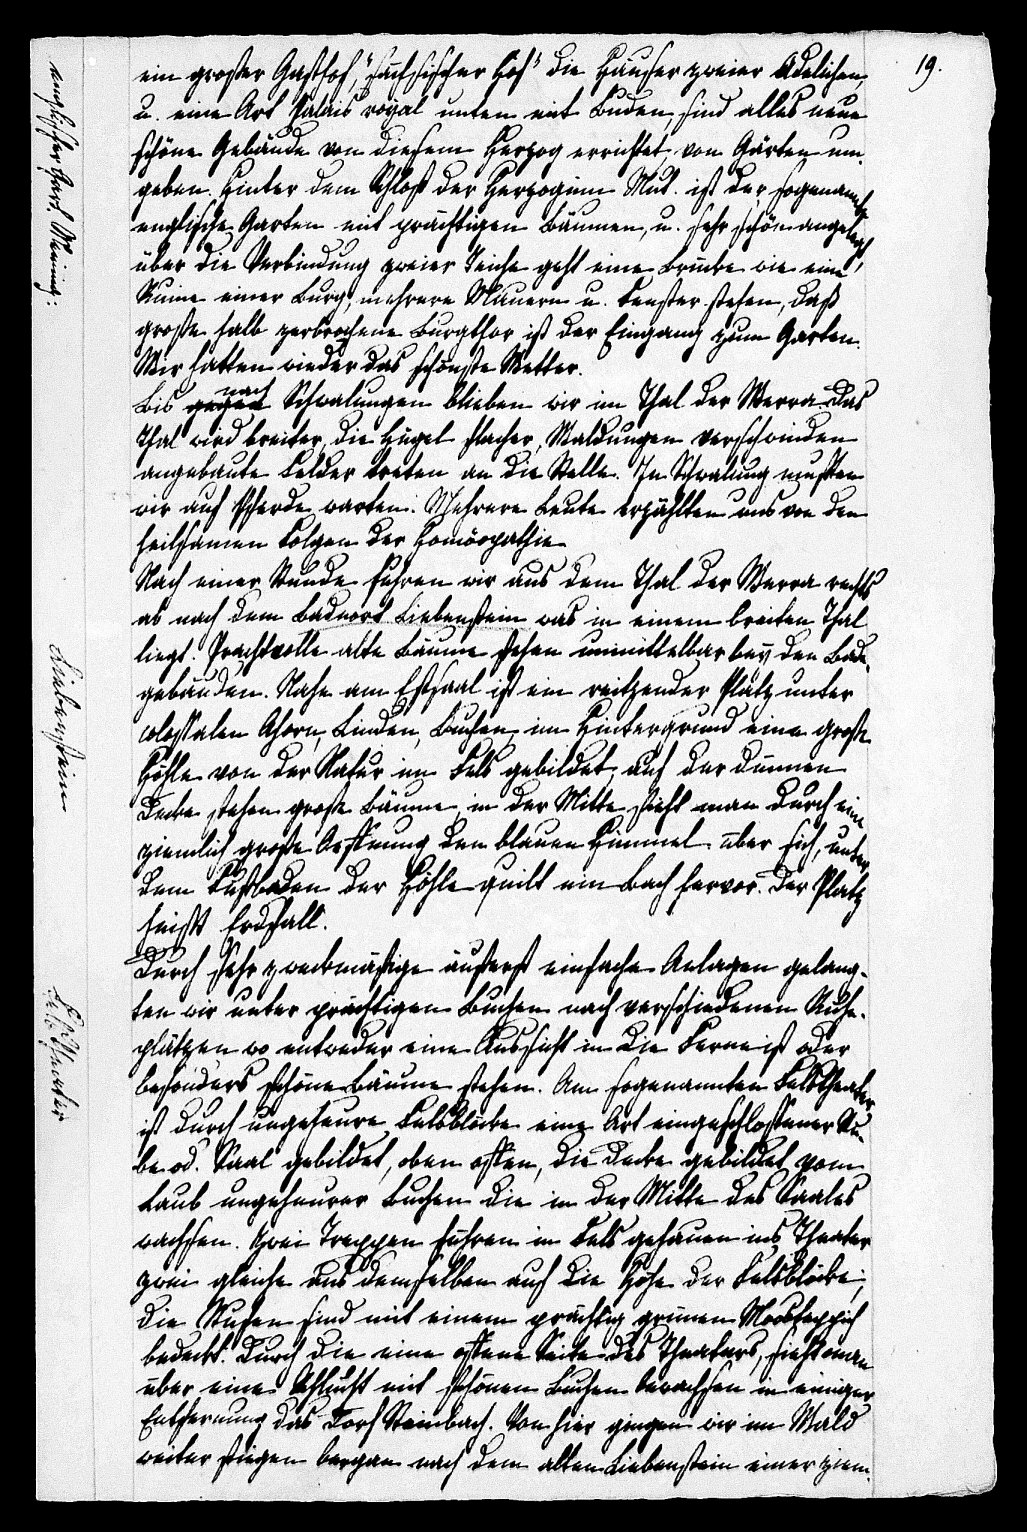 19.
ein großer Gasthof, "sächsischer Hof" die Häuser zweier Adelichen,
u. eine Art Palais royal unten mit Buden, sind alles neue
schöne Gebäude von diesem Herzog errichtet, von Gärten um-
geben. Hinter dem Schloß der Herzoginn Mut. ist der sogenannte
englische Garten mit prächtigen Bäumen, u. sehr schön angelegt,
über die Verbindung zweier Teiche geht eine Brücke wie eine
Ruine einer Burg, mehrere Mauern u. Fenster stehen, daß
große halb zerbrochene Burgthor ist der Eingang zum Garten.
Wir hatten wieder das schönste Wetter.
Bis gegen nach Schwalungen blieben wir im Thal der Werra das
Thal wird breiter, die Hügel flacher, Waldungen verschwinden
angebaute Felder treten an die Stelle. In Schwalung mußten
wir auf Pferde warten. Mehrere Leute erzählten uns von den
heilsamen Folgen der Homöopathie
Nach einer Stunde fuhren wir aus dem Thal der Werra rechts
ab nach dem Badeort Liebenstein was in einem breiten Thal
liegt. Prachtvolle alte Bäume stehen unmittelbar beÿ den Bade-
gebäuden. Nahe am Eßsaal ist ein reitzender Platz unter
colossalen Ahorn, Linden, Buchen, im Hintergrund eine große
Höhle von der Natur im Fels gebildet, auf der dünnen
Decke stehen große Bäume, in der Mitte sieht man durch eine
ziemlich große Oeffnung den blauen Himmel über sich, unter
dem Fußboden der Höhle quilt ein Bach hervor. Der Platz
heißt Erdfall.
Durch sehr zweckmäßige äußerst einfache Anlagen gelang-
ten wir unter prächtigen Buchen nach verschiedenen Ruhe-
plätzen wo entweder eine Aussicht in die Ferne ist oder
besonders schöne Bäume stehen. Am sogenannten Felstheater
ist durch ungeheure Felsblöcke eine Art eingeschlossener Stu-
be od. Saal gebildet, oben offen, die Decke gebildet vom
Laub ungeheurer Buchen die in der Mitte des Saales
wachsen. Zwei Treppen führen in Fels gehauen ins Theater
zwei gleiche aus demselben auf die Höhe der Felsblöcke;
die Stufen sind mit einem prächtig grünen Moosteppich
bedeckt. Durch die eine offene Seite des Theaters, sieht man
über eine Schlucht mit schönen Buchen bewachsen in einiger
Entfernung das Dorf Steinbach. Von hier gingen wir im Wald
weiter stiegen bergan nach dem alten Liebenstein einer ziem-
englischer Gart. Meining:
Liebenstein
Felstheater